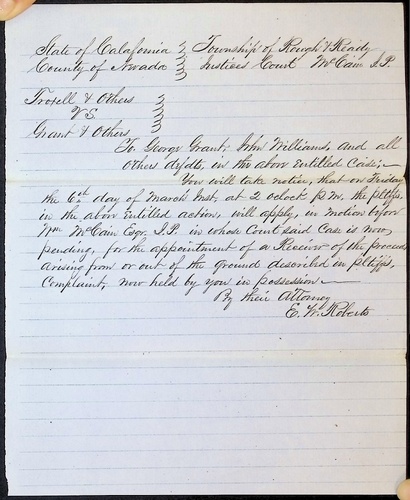 State of Calafornia } Township of Rough & Ready
County of Nevada } Justices Court McCain J.P.
Troxell & Others
VS
Grant & Others
To George Grant, John Williams, and all
others dfdts, in the above entitled Case;—
You will take notice, that on Friday
the 6th day of March Inst. at 2 oclock P.M. the pltffs,
in the above entitled action, will apply, in motion before
Wm McCain Esqr. J.P. in whose Court said Case is now
pending, for the appointment of a Reciever of the proceeds
arising from or out of the ground described in pltiffs,
Complaint, now held by you in possession—
By their Attorney
E. W. Roberts